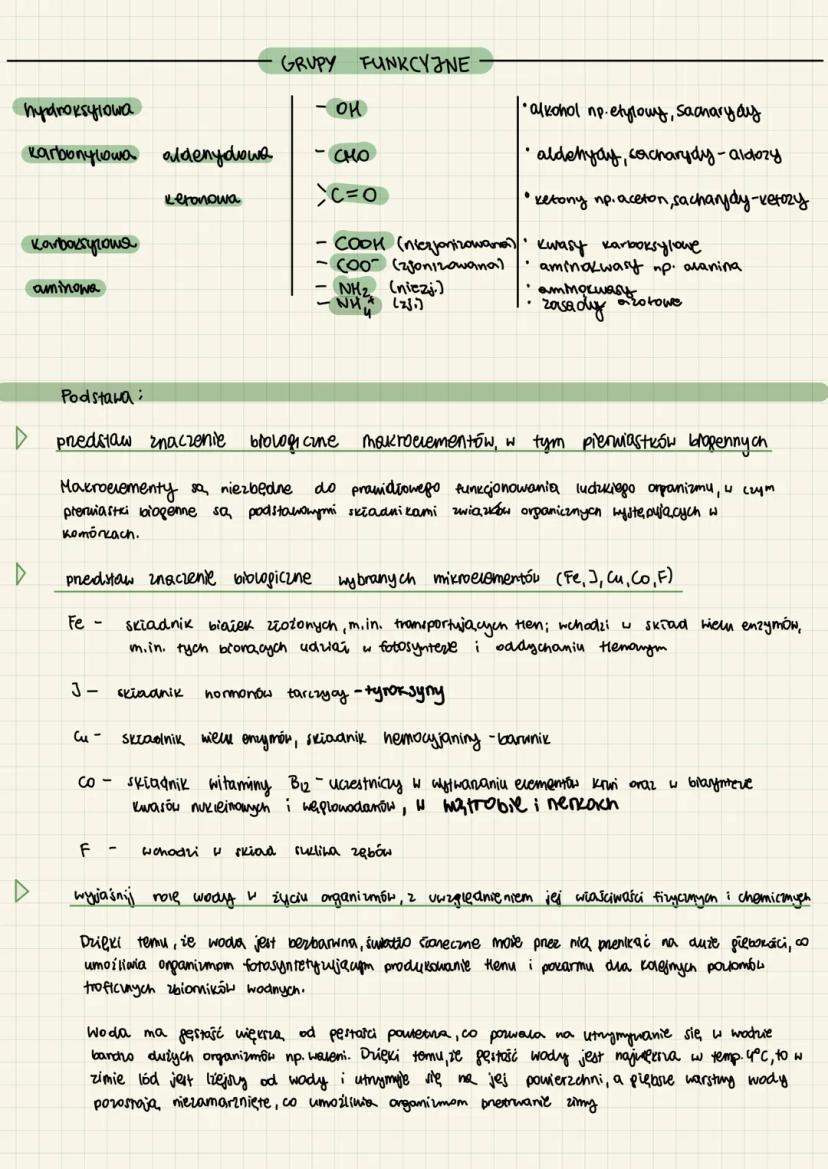 GRUPY FUNKCYJNE
hydroksylowa - OH • alkohol np. etylowy, sacharydy
karbonylowa aldehydowa - CHO • aldehydy, sacharydy - aldozy
ketonowa >C=O • ketony np. aceton, sacharydy - ketozy
karboksylowa - COOH (niezjonizowana) • kwasy karboksylowe
- COO⁻ (zjonizowana) • aminokwasy np. alanina
aminowa - NH₂ (niezj.) • aminokwasy
- NH₄⁺ (zj.) • zasady azotowe
Podstawa:
przedstaw znaczenie biologiczne makroelementów, w tym pierwiastków biogennych
Makroelementy są niezbędne do prawidłowego funkcjonowania ludzkiego organizmu, w czym
pierwiastki biogenne są podstawowymi składnikami związków organicznych występujących w
komórkach.
przedstaw znaczenie biologiczne wybranych mikroelementów (Fe, J, Cu, Co, F)
Fe - składnik białek złożonych, m.in. transportujących tlen; wchodzi w skład wielu enzymów,
m.in. tych biorących udział w fotosyntezie i oddychaniu tlenowym
J - składnik hormonów tarczycy - tyroksyny
Cu - składnik wielu enzymów, składnik hemocyjaniny - barwnik
Co - składnik witaminy B₁₂ - uczestniczy w wytwarzaniu elementów krwi oraz w biosyntezie
kwasów nukleinowych i węglowodanów, w wątrobie i nerkach
F - wchodzi w skład szkliwa zębów
wyjaśnij rolę wody w życiu organizmów, z uwzględnieniem jej właściwości fizycznych i chemicznych
Dzięki temu, że woda jest bezbarwna, światło słoneczne może przez nią przenikać na duże głębokości, co
umożliwia organizmom fotosyntetyzującym produkowanie tlenu i pokarmu dla kolejnych poziomów
troficznych zbiorników wodnych.
Woda ma gęstość większą od gęstości powietrza, co pozwala na utrzymywanie się w wodzie
bardzo dużych organizmów np. waleni. Dzięki temu, że gęstość wody jest największa w temp. 4°C, to w
zimie lód jest lżejszy od wody i utrzymuje się na jej powierzchni, a głębsze warstwy wody
pozostają niezamarznięte, co umożliwia organizmom przetrwanie zimy